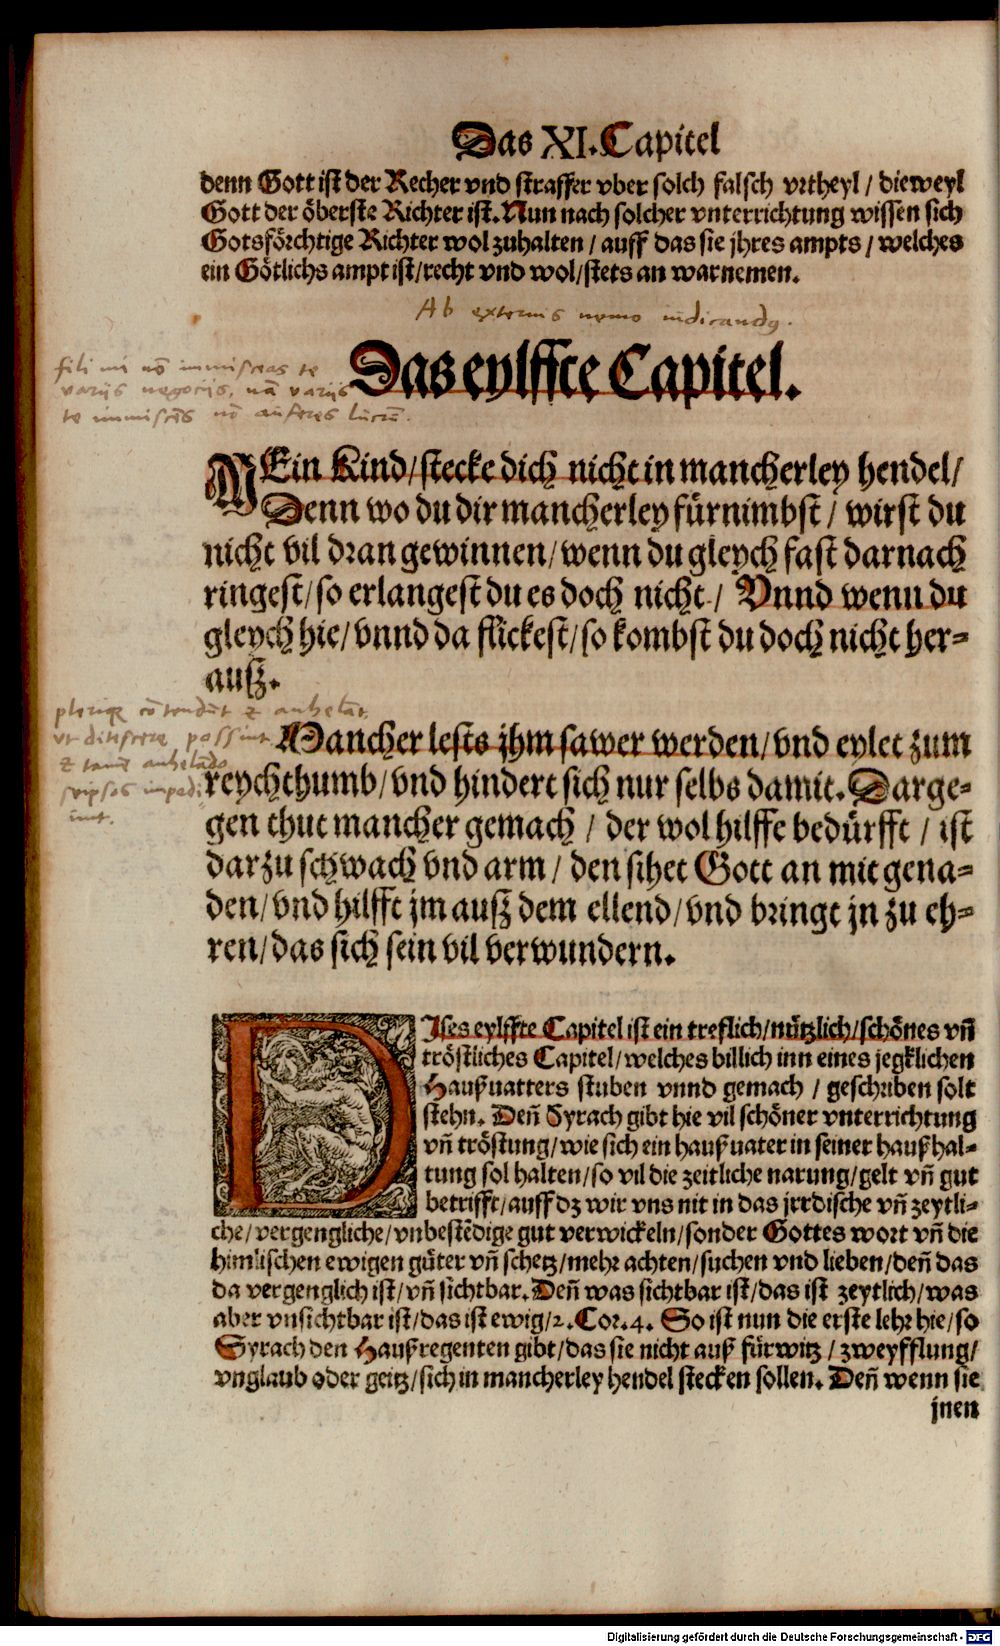 Das XI. Capitel
denn Gott ist der Recher vnd straffer vber solch falsch vrtheyl / dieweyl
Gott der öberste Richter ist. Nun nach solcher vnterrichtung wissen sich
Gotsförchtige Richter wol zuhalten / auff das sie jhres ampts / welches
ein Götlichs ampt ist / recht vnd wol / stets an warnemen.
Ab externis nemo iudicandus.
fili mi nō immisceas te
variis negociis, nā variis
te immiscēs nō auferes lucrū.
Das eylffte Capitel.
MEin Kind / stecke dich nicht in mancherley hendel /
Denn wo du dir mancherley fürnimbst / wirst du
nicht vil dran gewinnen / wenn du gleych fast darnach
ringest / so erlangest du es doch nicht / Vnnd wenn du
gleych hie / vnnd da flickest / so kombst du doch nicht her-
auß.
plerique cōtendūt & anhelāt,
vt ditescere possint
& tamē anhelādo
seipsos impedi-
unt.
Mancher lests jhm sawer werden / vnd eylet zum
reychthumb / vnd hindert sich nur selbs damit. Darge-
gen thut mancher gemach / der wol hilffe bedürfft / ist
darzu schwach vnd arm / den sihet Gott an mit gena-
den / vnd hilfft jm auß dem ellend / vnd bringt jn zu eh-
ren / das sich sein vil verwundern.
DIses eylffte Capitel ist ein treflich / nützlich / schönes vñ
tröstliches Capitel / welches billich inn eines jegklichen
Haußuatters stuben vnnd gemach / geschriben solt
stehn. Deñ Syrach gibt hie vil schöner vnterrichtung
vñ tröstung / wie sich ein haußuater in seiner haußhal-
tung sol halten / so vil die zeitliche narung / gelt vñ gut
betrifft / auff dz wir vns nit in das jrrdische vñ zeytli-
che / vergengliche / vnbestēdige gut verwickeln / sonder Gottes wort vñ die
himlischen ewigen güter vñ schetz / mehr achten / suchen vnd lieben / deñ das
da vergenglich ist / vñ sichtbar. Deñ was sichtbar ist / das ist zeytlich / was
aber vnsichtbar ist / das ist ewig / 2. Cor. 4. So ist nun die erste lehr hie / so
Syrach den Haußregenten gibt / das sie nicht auß fürwitz / zweyfflung /
vnglaub oder geitz / sich in mancherley hendel stecken sollen. Deñ wenn sie
jnen
Digitalisierung gefördert durch die Deutsche Forschungsgemeinschaft - DFG